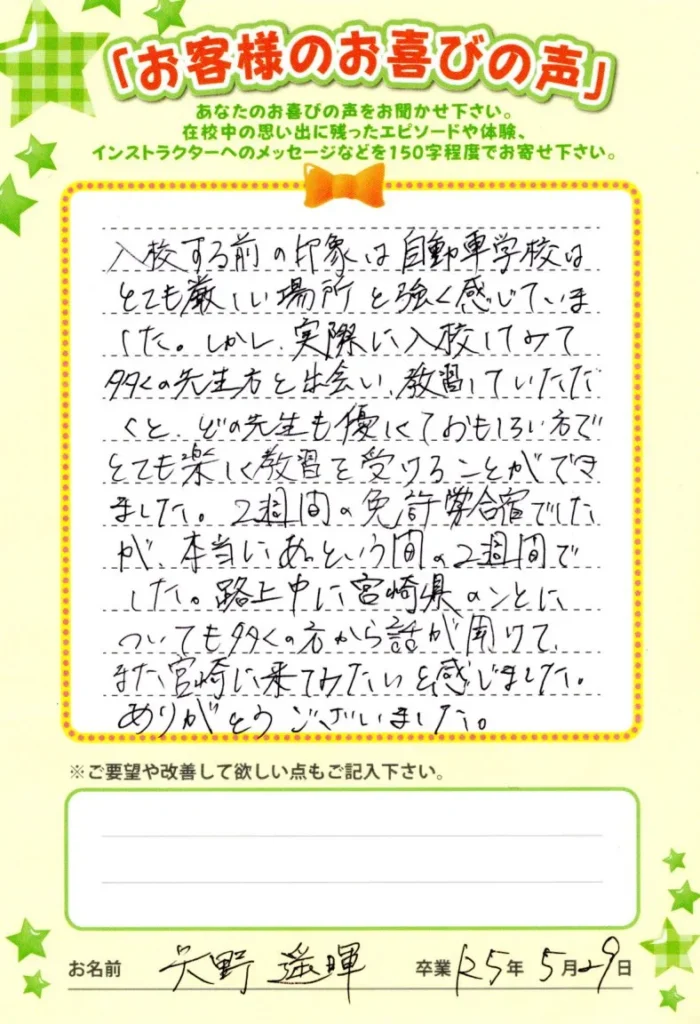 「お客様のお喜びの声」
あなたのお喜びの声をお聞かせ下さい。
在校中の思い出に残ったエピソードや体験、
インストラクターへのメッセージなどを150字程度でお寄せ下さい。
入校する前の印象は自動車学校は
とても厳しい場所と強く感じていま
した。しかし、実際に入校してみて
多くの先生方と出会い、教習していただ
くと、どの先生も優しくておもしろい方で
とても楽しく教習を受けることができ
ました。2週間の免許合宿でした
が、本当にあっという間の2週間で
した。路上中に宮崎県のことに
ついても多くの方から話が聞けて、
また宮崎に来てみたいと感じました。
ありがとうございました。
※ご要望や改善して欲しい点もご記入下さい。
お名前 矢野 遥暉 卒業 R5年 5月29日